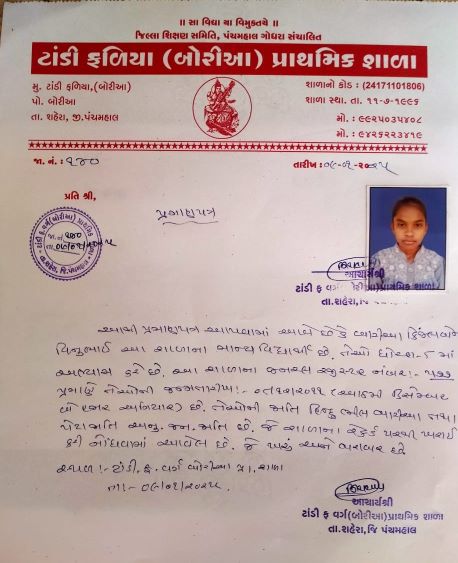 ॥ સા વિદ્યા યા વિમુક્તયે ॥
જિલ્લા શિક્ષણ સમિતિ, પંચમહાલ ગોધરા સંચાલિત
ટાંડી ફળિયા (બોરીઆ) પ્રાથમિક શાળા
મુ. ટાંડી ફળિયા,(બોરીઆ)
પો. બોરીઆ
તા. શહેરા, જી.પંચમહાલ
શાળાનો કોડ : (24171101806)
શાળા સ્થા. તા. ૧૧-૭-૧૯૬૧
મો. : ૯૯૨૫૦૩૫૪૦૮
મો. : ૯૪૨૬૨૨૩૪૧૯
જા. નં. : ૨૪૦
તારીખ :
પ્રતિ શ્રી,
પ્રમાણપત્ર
આચાર્યશ્રી
ટાંડી ફ વર્ગ(બોરીઆ)પ્રાથમિક શાળા
તા.શહેરા, જિ
આથી પ્રમાણપત્ર આપવામાં આવે છે કે બારીઆ
આ શાળાના વિદ્યાર્થી છે. તેઓ ધોરણ-૮ માં
અભ્યાસ કરે છે. આ શાળાના જનરલ રજીસ્ટર નંબર:-
પ્રમાણે તેઓની જન્મતારીખ:- ૦૮/૧૨/૨૦૧૧
બે હજાર અગિયાર) છે. તેઓની જાતિ હિન્દુ બારીઆ તથા
છે. જે શાળાના રેકર્ડ પરથી ખરાઈ
કરી નોંધવામાં આવેલ છે. જે ખરું અને બરાબર છે
સ્થળ:- ટાંડી. ફ. વર્ગ બોરીઆ પ્રા. શાળા
તા:-
આચાર્યશ્રી
ટાંડી ફ વર્ગ(બોરીઆ)પ્રાથમિક શાળા
તા.શહેરા, જિ પંચમહાલ